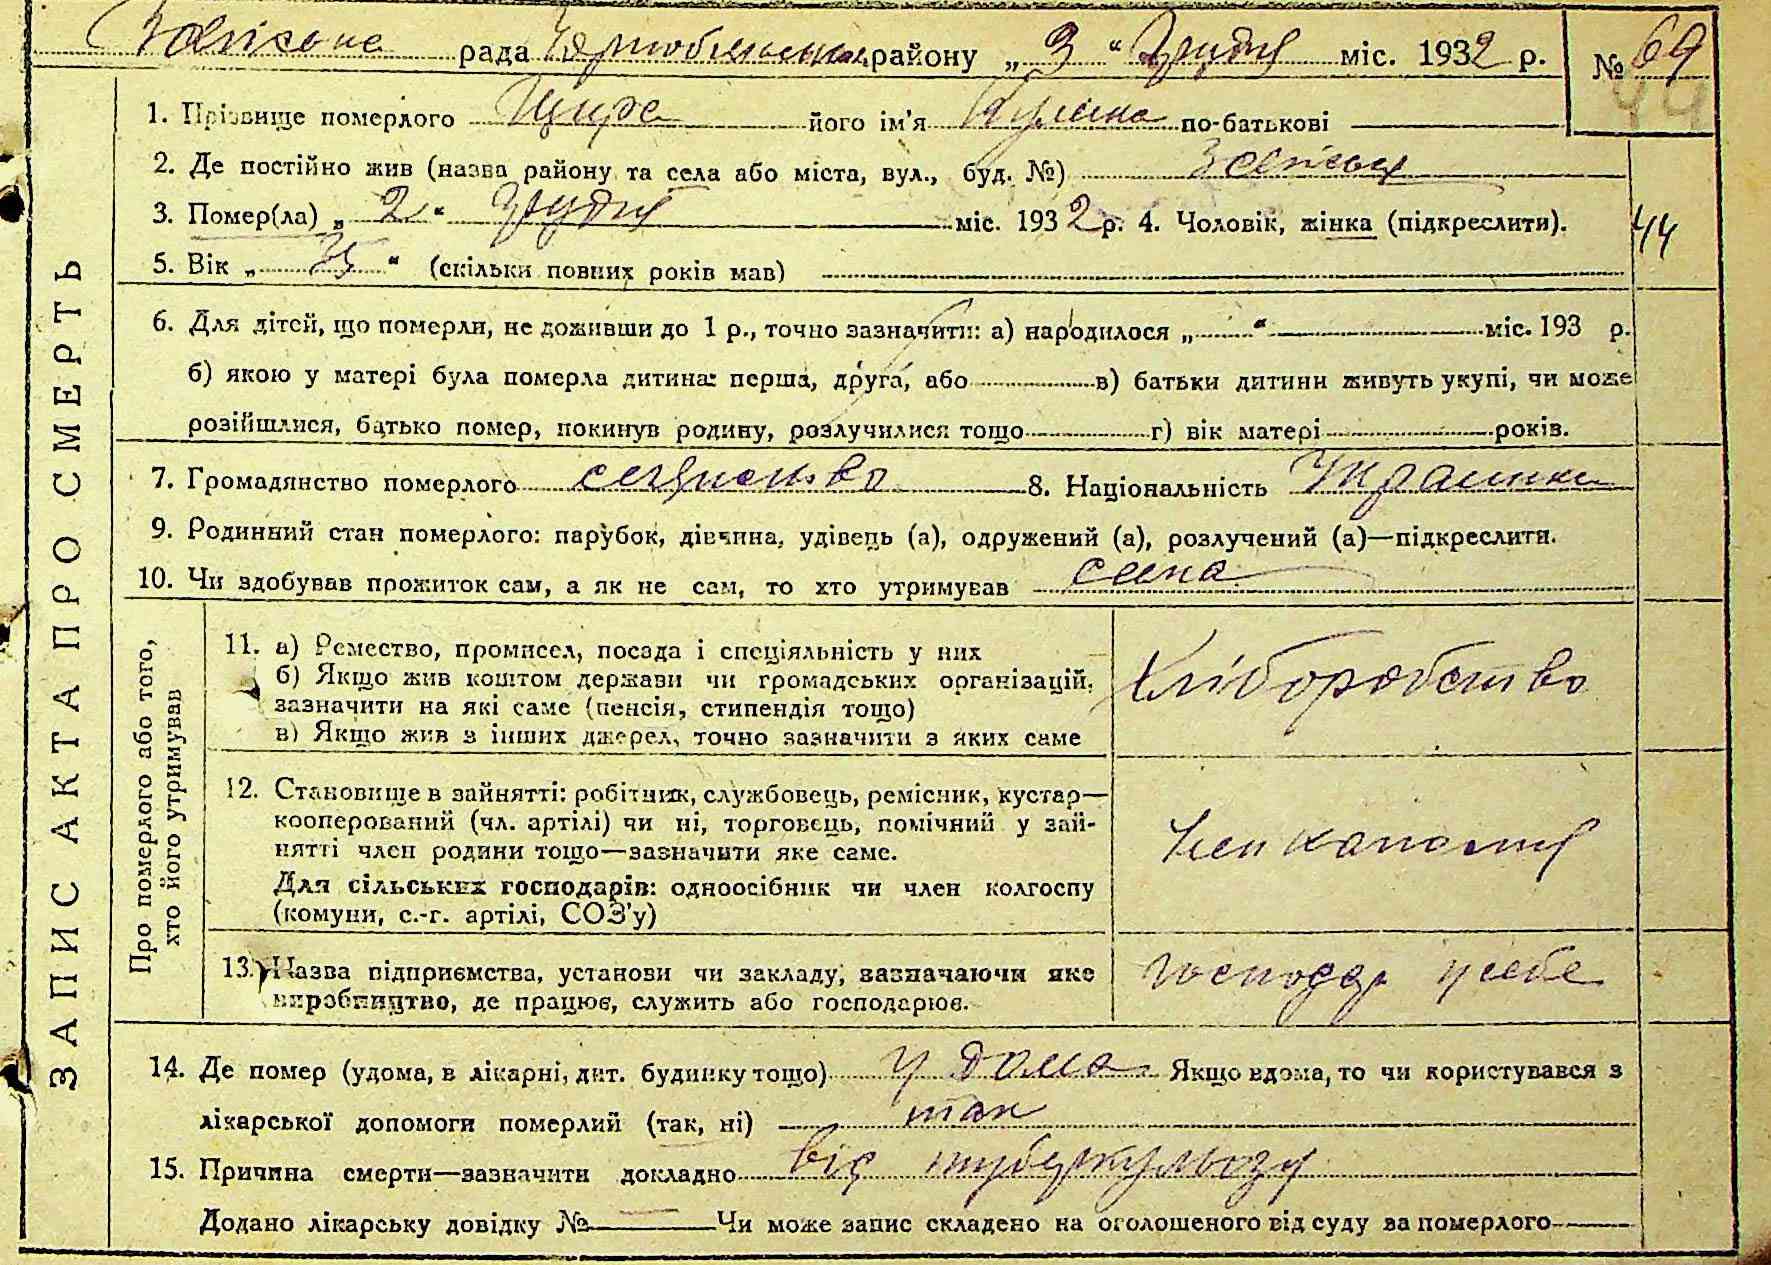 рада Чорнобильськ. району „ 3 “ Грудня міс. 1932 р. № 69
44
1. Прізвище померлого його ім'я по-батькові
2. Де постійно жив (назва району та села або міста, вул., буд. №)
3. Помер(ла) „ 2 “ Грудня міс. 1932 р. 4. Чоловік, жінка (підкреслити). 44
5. Вік „ 35 “ (скільки повних років мав)
6. Для дітей, що померли, не доживши до 1 р., точно зазначити: а) народилося „ “ міс. 193 р.
б) якою у матері була померла дитина: перша, друга, або в) батьки дитини живуть укупі, чи може
розійшлися, батько помер, покинув родину, розлучилися тощо г) вік матері років.
7. Громадянство померлого 8. Національність Українка
9. Родинний стан померлого: парубок, дівчина, удівець (а), одружений (а), розлучений (а)—підкреслити.
10. Чи здобував прожиток сам, а як не сам, то хто утримував сама
ЗАПИС АКТА ПРО СМЕРТЬ
Про померлого або того,
хто його утримував
11. а) Ремество, промисел, посада і спеціяльність у них
б) Якщо жив коштом держави чи громадських організацій,
зазначити на які саме (пенсія, стипендія тощо)
в) Якщо жив з інших джерел, точно зазначити з яких саме
Хліборобство
12. Становище в зайнятті: робітник, службовець, ремісник, кустар—
кооперований (чл. артілі) чи ні, торговець, помічний у зай-
нятті член родини тощо—зазначити яке саме.
Для сільських господарів: одноосібник чи член колгоспу
(комуни, с.-г. артілі, СОЗ'у)
13. Назва підприємства, установи чи закладу, зазначаючи яке
виробництво, де працює, служить або господарює.
господар у себе
14. Де помер (удома, в лікарні, дит. будинку тощо) у дома Якщо вдома, то чи користувався з
лікарської допомоги померлий (так, ні) так
15. Причина смерти—зазначити докладно від туберкульозу
Додано лікарську довідку № Чи може запис складено на оголошеного від суду за померлого